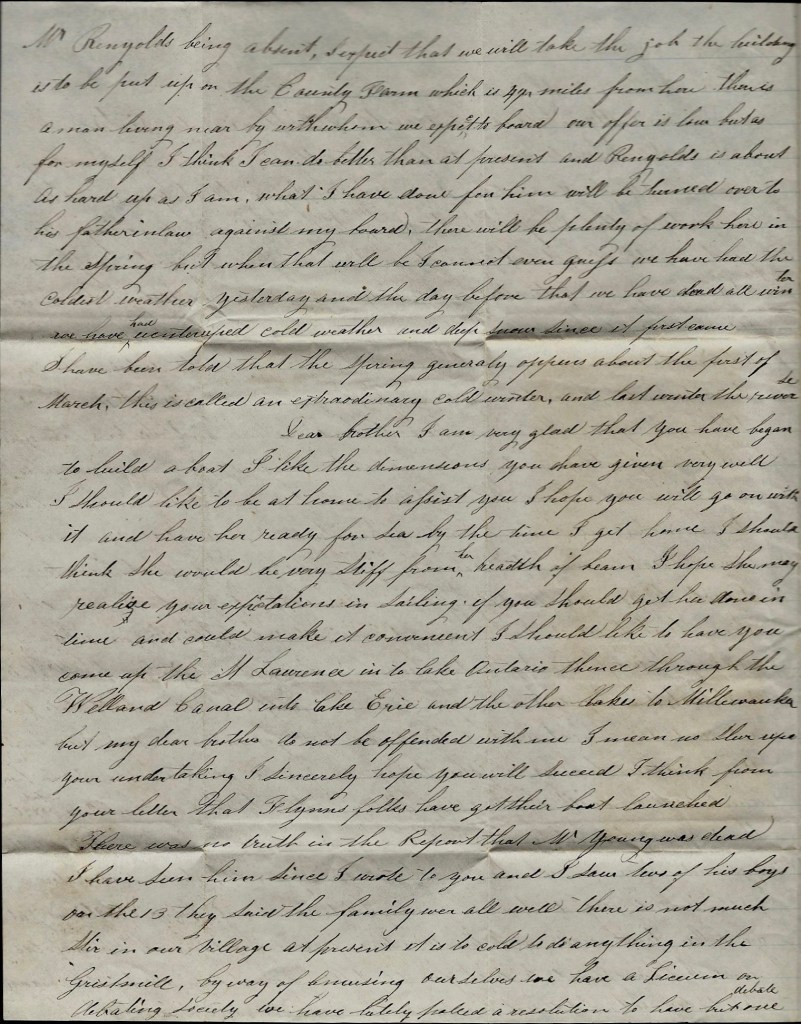 Mr Renyolds being absent, I expect that we will take the job the building
is to be put up on the County Farm which is 4½ miles from here there is
a man living near by with whom we expect to board our offer is low but as
for myself I think I can do better than at present and Renyolds is about
as hard up as I am, what I have done for him will be turned over to
his father in law against my board, there will be plenty of work here in
the Spring but when that will be I cannot even guess we have had the
coldest weather yesterday and the day before that we have had all winter
we have had uninterruped cold weather and deep snow since it first came
I have been told that the Spring generaly oppens about the first of
March, this is called an extraodinary cold winter, and last winter the reverse
Dear brother I am very glad that you have began
to build a boat I like the dimensions you have given very well
I should like to be at home to assist you I hope you will go on with
it and have her ready for sea by the time I get home I should
think she would be very stiff from her breadth of beam I hope she may
realize your expctations in sailing. if you should get her done in
time and could make it convenient I should like to have you
come up the St Laurence in to lake Ontario thence through the
Welland Canal into lake Erie and the other lakes to Millewaukee
but my dear brother do not be offended with me I mean no slur upon
your undertaking I sincerely hope you will succeed I think from
your letter that Flynns folks have got their boat launched
There was no truth in the Report that Mr Young was dead
I have seen him since I wrote to you and I saw two of his boys
on the 13 they said the family wer all well there is not much
stir in our village at present it is to cold to do anything in the
Gristmill, by way of amusing ourselves we have a Liceum or
debating society we have lately passed a resolution to have but one debate